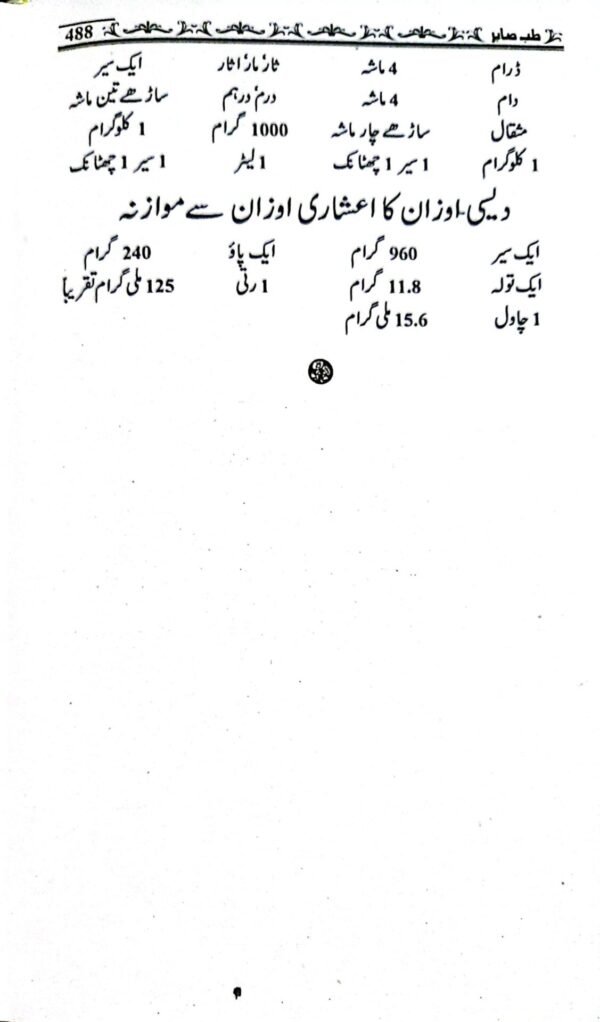 طب صابر 488
ڈرام 4 ماشہ ثار/مار/اثار ایک سیر
دام 4 ماشہ درم/درہم ساڑھے تین ماشہ
مثقال ساڑھے چار ماشہ 1000 گرام 1 کلوگرام
1 کلوگرام 1 سیر 1 چھٹانک 1 لیٹر 1 سیر 1 چھٹانک
دیسی اوزان کا اعشاری اوزان سے موازنہ
ایک سیر 960 گرام ایک پاؤ 240 گرام
ایک تولہ 11.8 گرام 1 رتی 125 ملی گرام تقریباً
1 چاول 15.6 ملی گرام